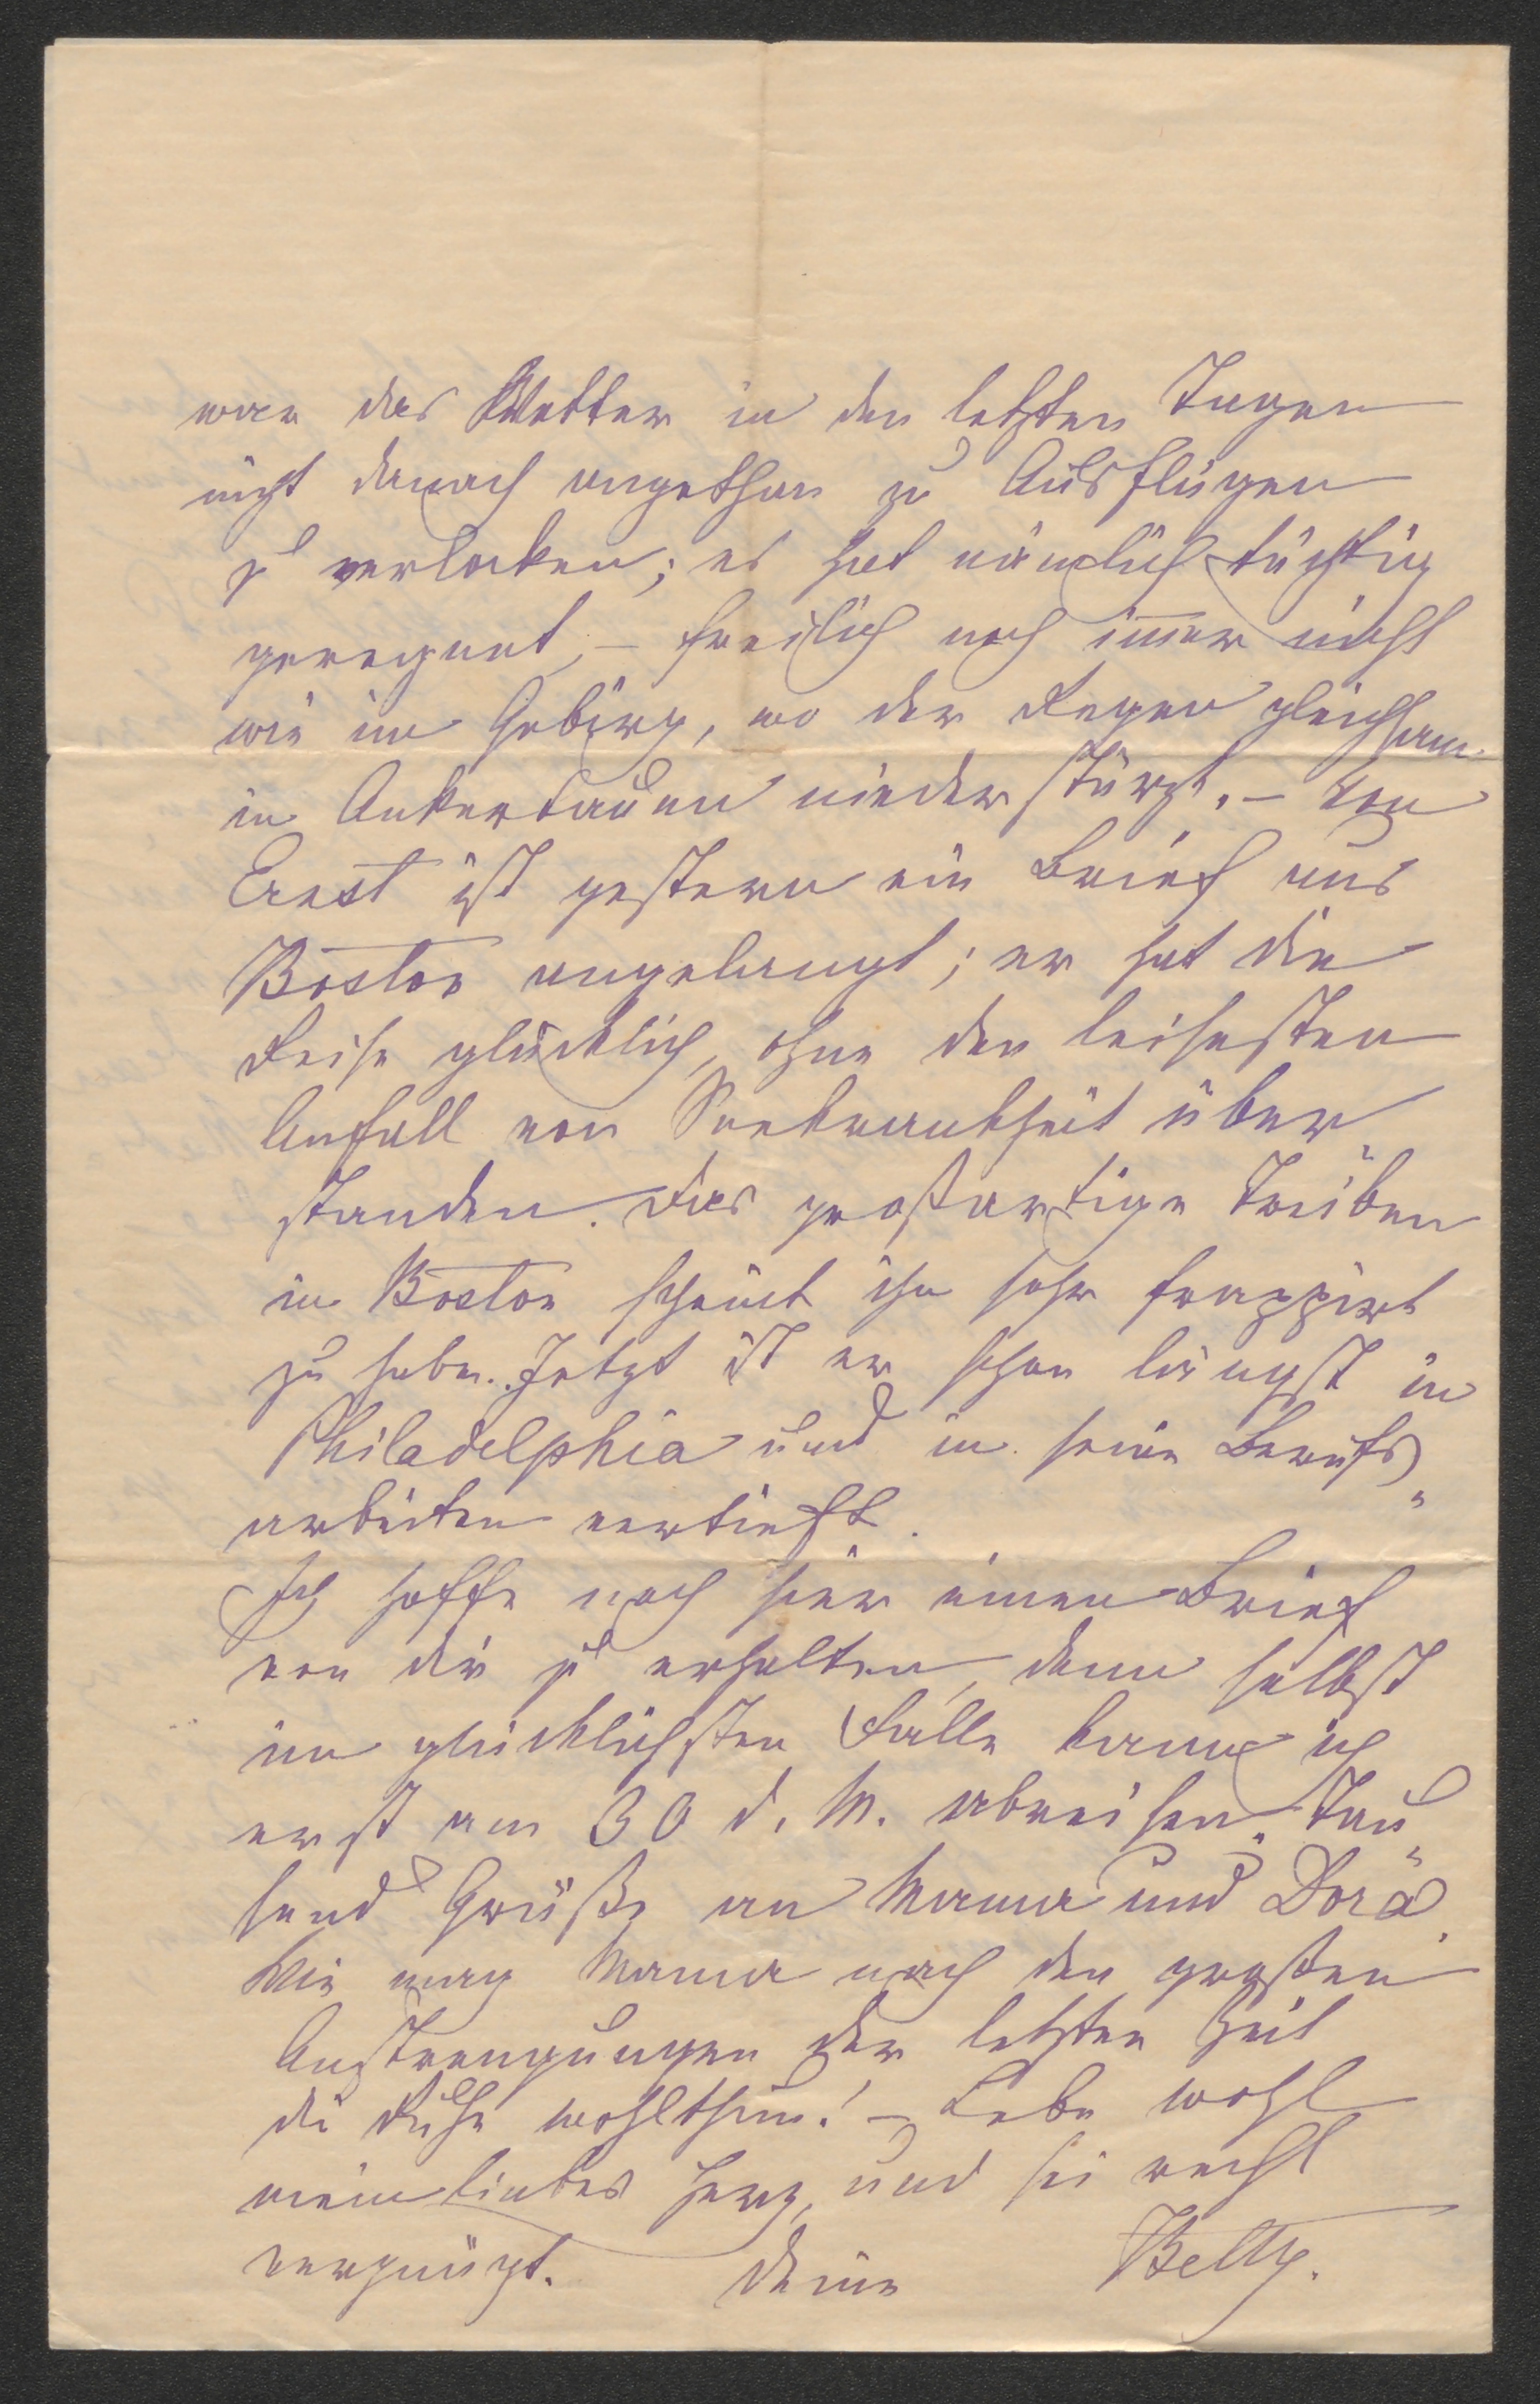 war das Wetter in den letzten Tagen
nicht danach angethan zu Ausflügen
zu verlocken; es hat nämlich tüchtig
geregnet, – freilich noch immer nicht
wie im Gebirg, wo der Regen gleichsam
in Ankertauen niederstürzt. – Von
Ernst ist gestern ein Brief aus
Boston angelangt; er hat die
Reise glücklich, ohne den leisesten
Anfall von Seekrankheit über„
standen. Das großartige Treiben
in Boston scheint ihn sehr frappirt
zu haben. Jetzt ist er schon längst in
Philadelphia und in seine Berufs„
arbeiten vertieft.
Ich hoffe noch hier einen Brief
von dir zu erhalten, denn selbst
im glücklichsten Falle kann ich
erst am 30 d. M. abreisen. Tau„
send Grüße an Mama und Dora.
Wie mag Mama nach den großen
Anstrengungen der letzten Zeit
die Ruhe wohlthun! – Lebe wohl
mein liebes Herz, und sei recht
vergnügt. Deine Betty.